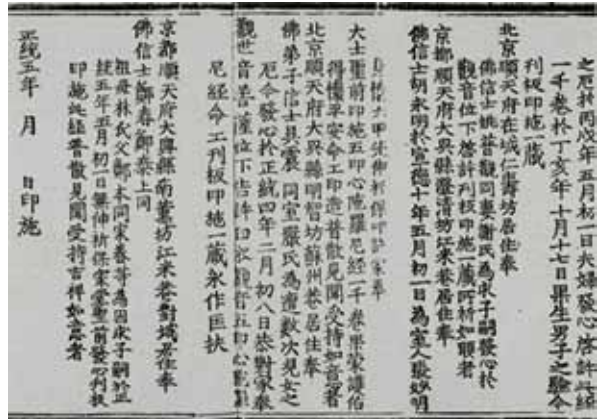 之厄於丙戌年五月初一日夫婦發心啓許此經
一千卷於丁亥年十月十七日果生男子之驗今
刊板印施一藏
北京順天府在城仁壽坊居住奉
佛信士姚普觀同妻謝氏為求子嗣發心於
觀音位下啓許刊板印施一藏所祈如願者
京都順天府大興縣澄清坊江米巷居住奉
佛信士胡永明於宣德十年五月初一日為室人發妙明
大士聖前印施五印心陁羅尼經一千卷果蒙護佑
得獲平安命工印造普散見聞受持如意者
北京順天府大興縣明智坊蘇州巷居住奉
佛弟子信士具震同室嚴氏為遭數次見女之
厄今發心於正統四年二月初八日恭對家奉
觀世音菩薩位下告許印施觀音五印心
尼經命工刊板印施一藏永作匡扶
京都順天府大興縣南薰坊江米巷對城居住奉
佛信士鄭春鄭泰上同
祖母林氏父鄭本同家眷等為因求子嗣於正
統五年五月初一日興伸祈保家堂聖前發心刊板
印施此經普散見聞受持吉祥如意者
正統五年 月 日印施